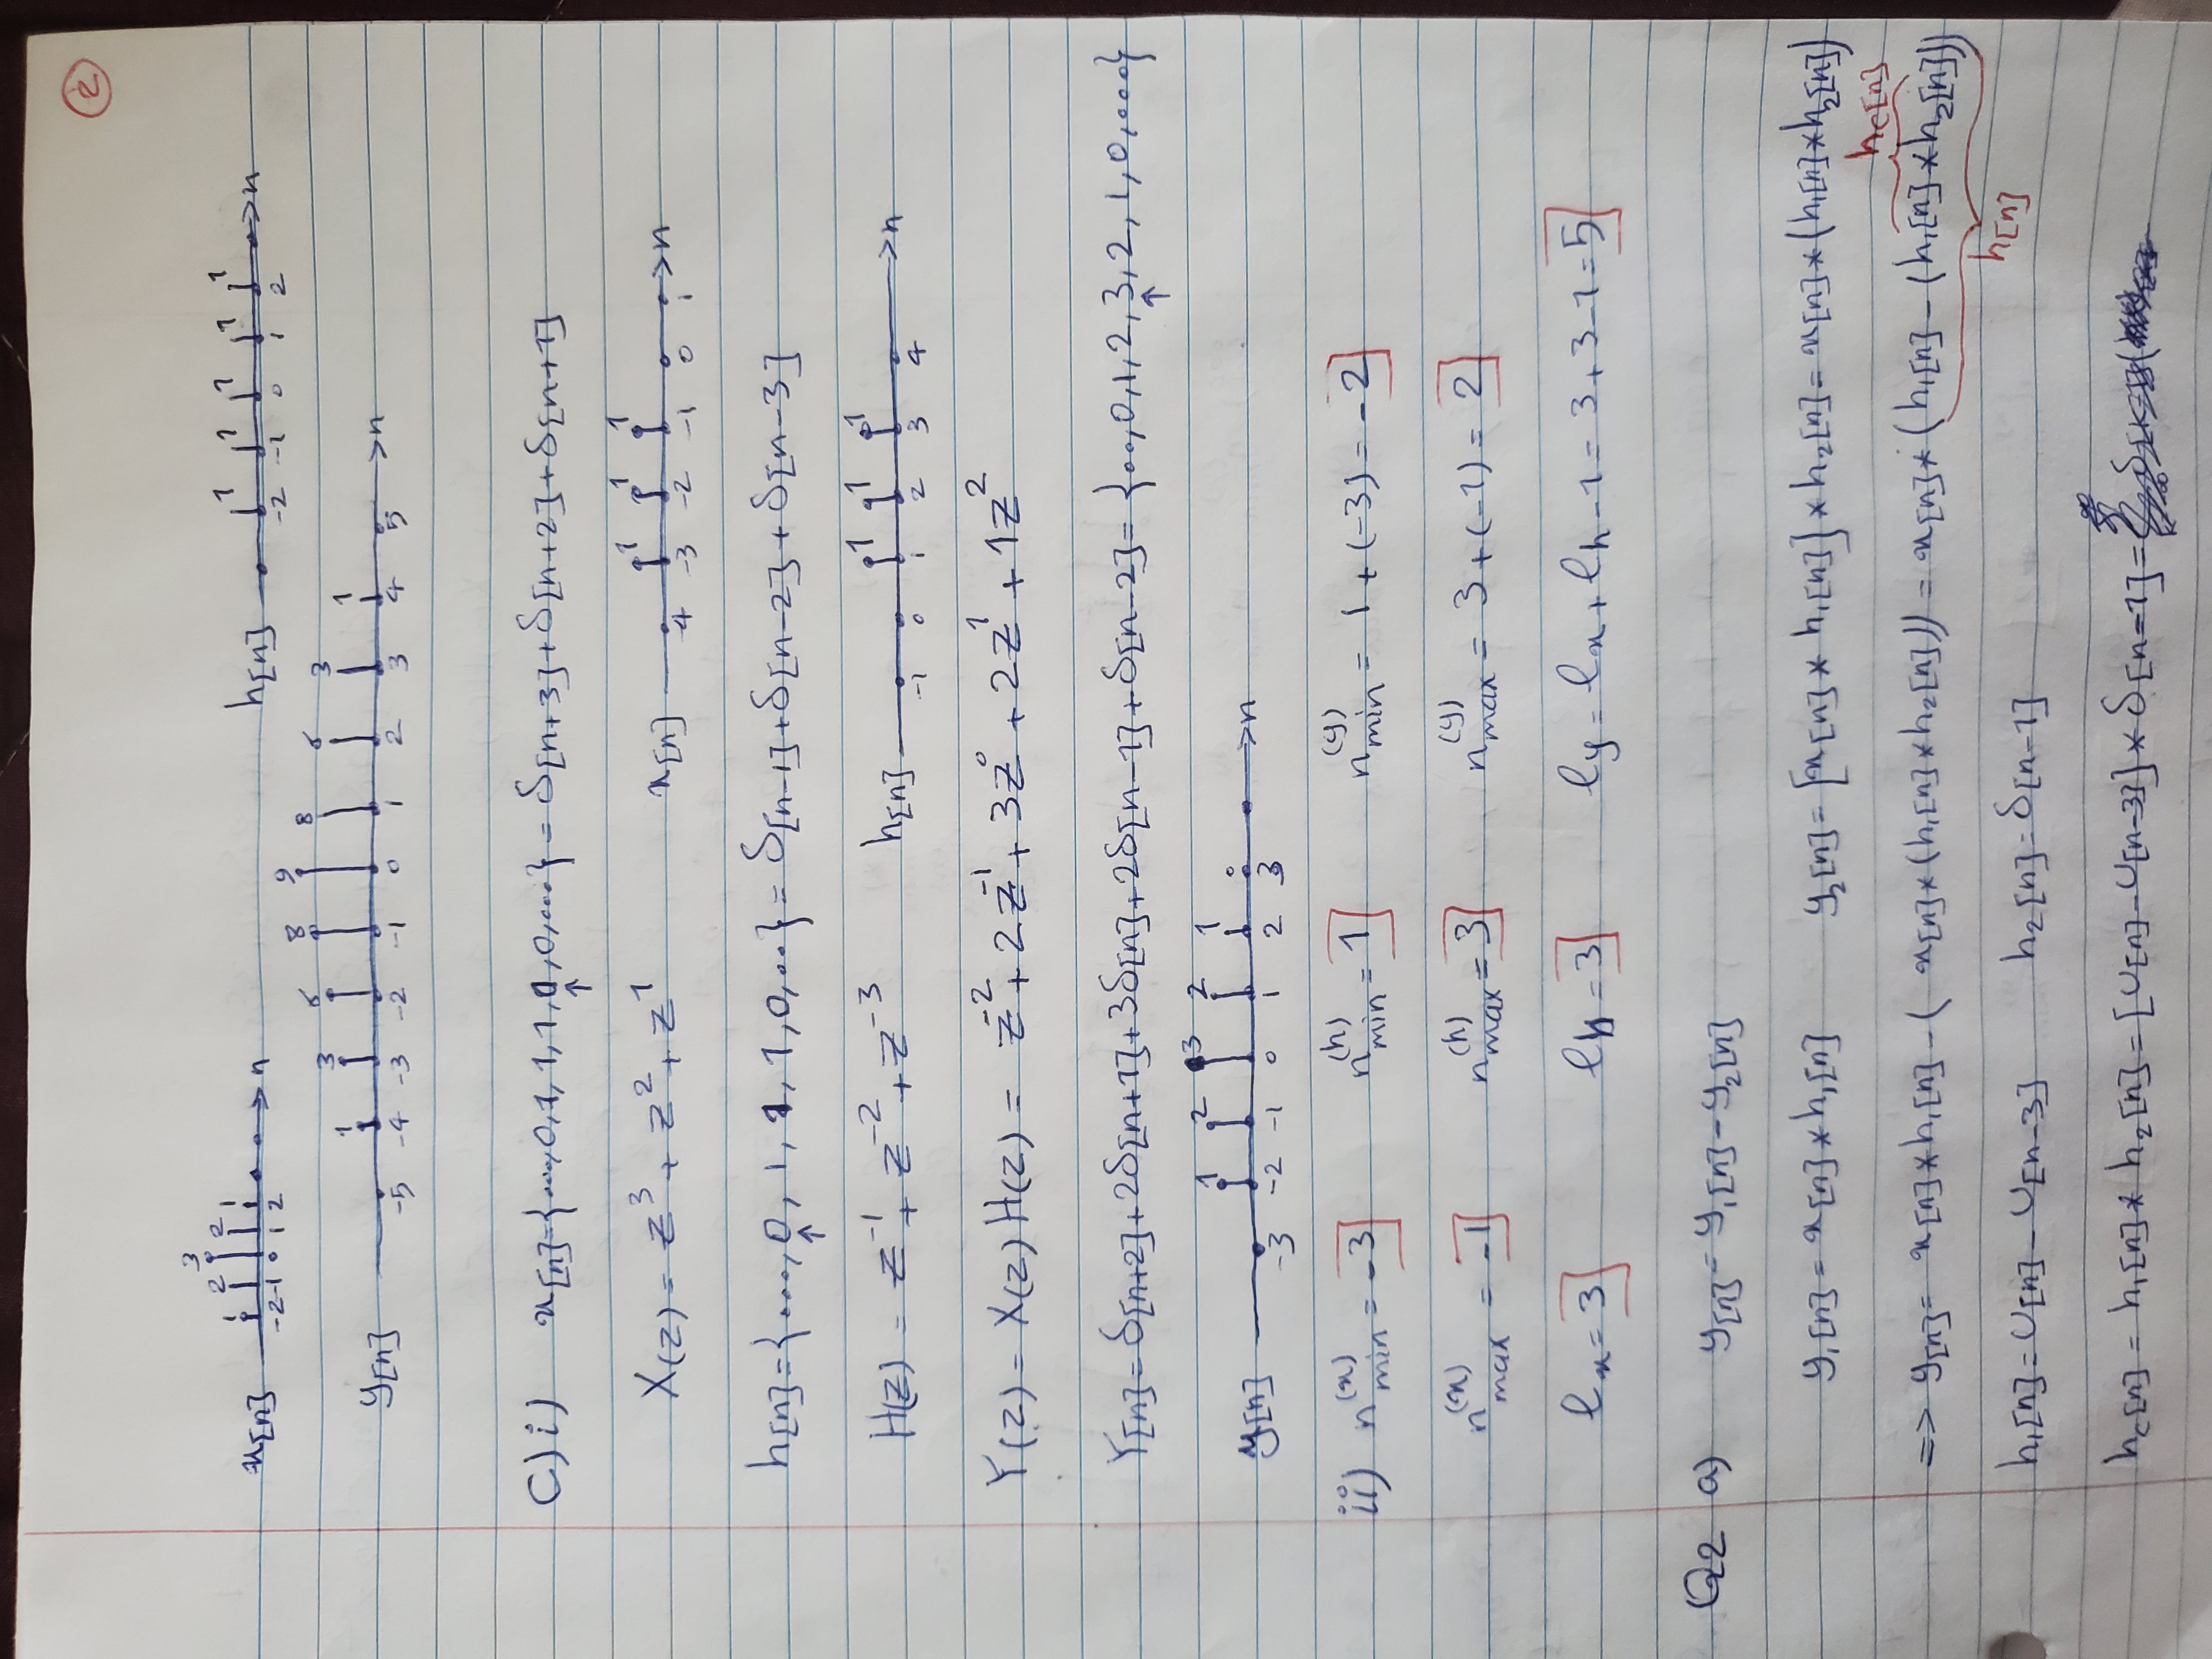 2
3
1 2 2 1
x[n] -2 -1 0 1 2 n
1 1 1 1 1
h[n] -2 -1 0 1 2 n
1 3 6 8 9 8 6 3 1
y[n] -5 -4 -3 -2 -1 0 1 2 3 4 5 n
C) i) x[n] = {..., 0, 1, 1, 1, 0, 0, ...} = δ[n+3] + δ[n+2] + δ[n+1]
↑
X(z) = z³ + z² + z¹
1 1 1
x[n] -4 -3 -2 -1 0 1 n
h[n] = {..., 0, 1, 1, 1, 0, ..} = δ[n-1] + δ[n-2] + δ[n-3]
↑
H(z) = z⁻¹ + z⁻² + z⁻³
1 1 1
h[n] -1 0 1 2 3 4 n
Y(z) = X(z) H(z) = z⁻² + 2z⁻¹ + 3z⁰ + 2z¹ + 1z²
Y[n] = δ[n+2] + 2δ[n+1] + 3δ[n] + 2δ[n-1] + δ[n-2] = {.., 0, 1, 2, 3, 2, 1, 0, ...}
↑
1 2 3 2 1
y[n] -3 -2 -1 0 1 2 3 n
ii) n_min^(x) = -3] n_min^(h) = 1] n_min^(y) = 1 + (-3) = -2]
n_max^(x) = -1] n_max^(h) = 3] n_max^(y) = 3 + (-1) = 2]
lx = 3] lh = 3] ly = lx + lh - 1 = 3 + 3 - 1 = 5]
Q2 a) y[n] = y₁[n] - y₂[n]
y₁[n] = x[n] * h₁[n] y₂[n] = [x[n] * h₁[n]] * h₂[n] = x[n] * (h₁[n] * h₂[n])
hc[n]
=> y[n] = x[n] * h₁[n] - ( x[n] * (h₁[n] * h₂[n])) = x[n] * (h₁[n] - (h₁[n] * h₂[n]))
h[n]
h₁[n] = U[n] - U[n-3] h₂[n] = δ[n-1]
hc[n] = h₁[n] * h₂[n] = [U[n] - U[n-3]] * δ[n-1] =